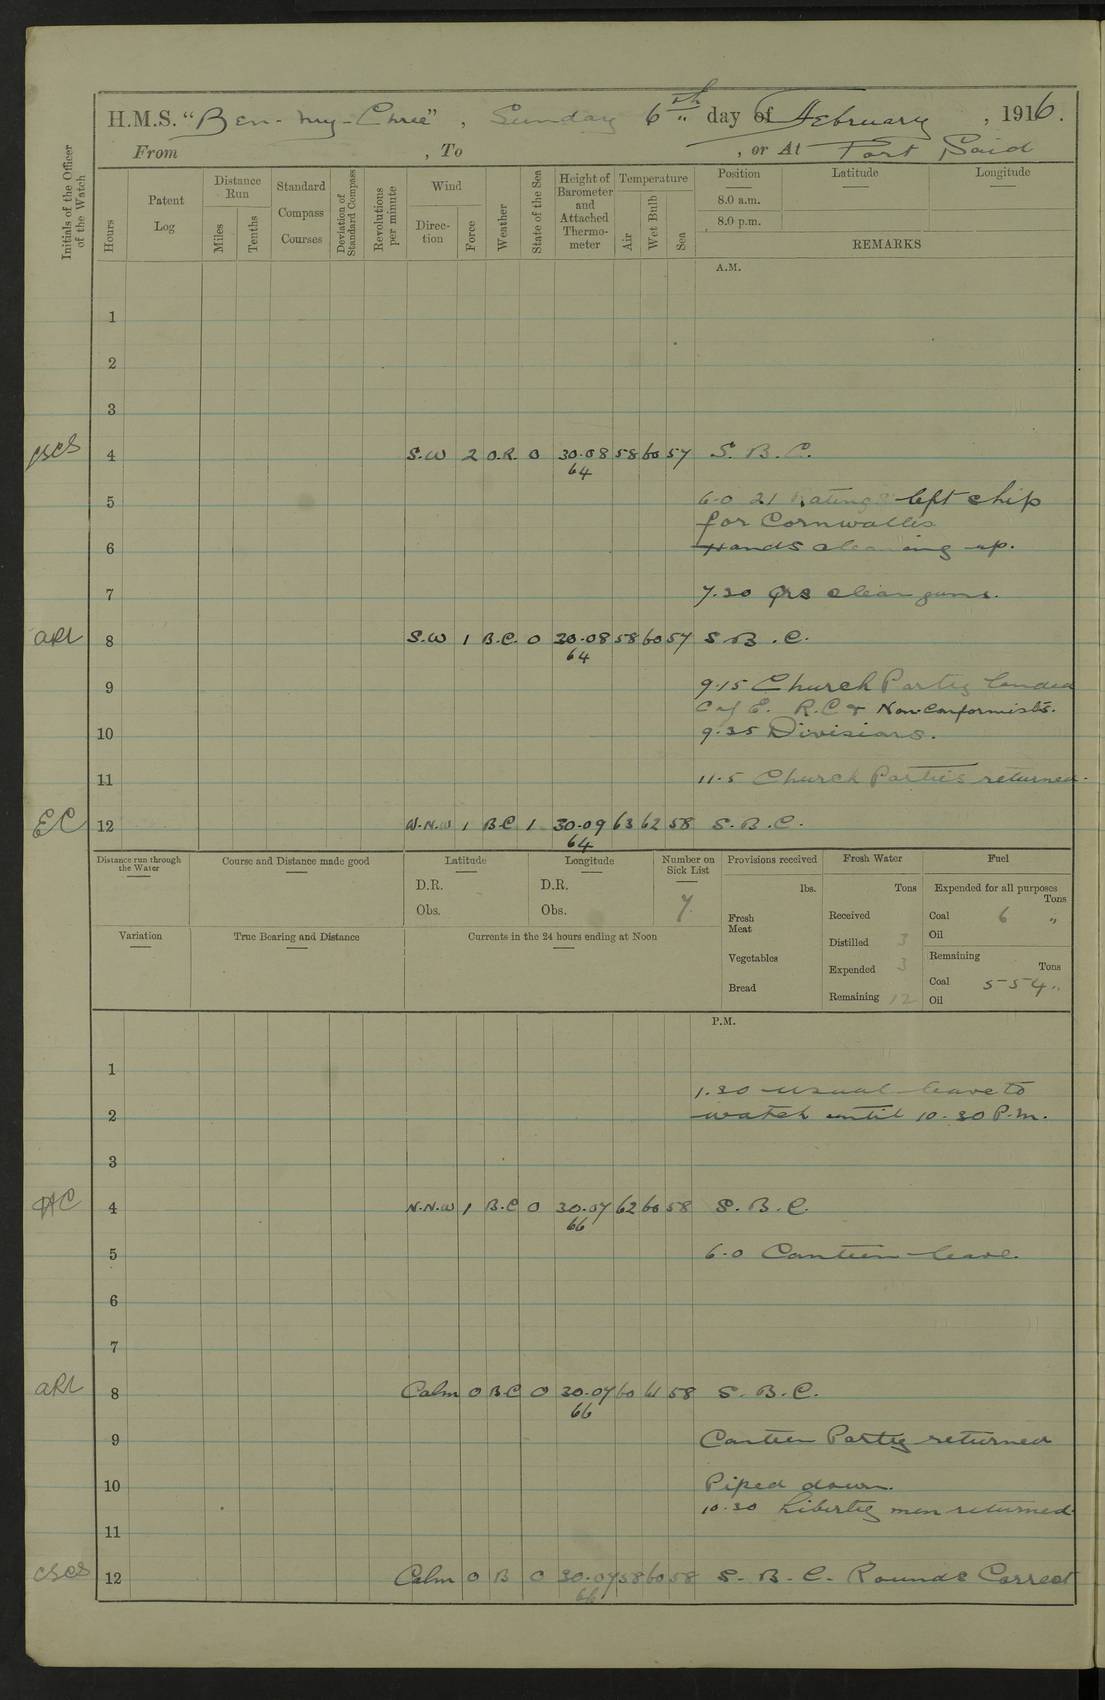 H.M.S. "Ben-my-Chree", Sunday 6th day of February, 1916.
From , To , or At Port Said
Initials of the Officer of the Watch
Hours
Patent Log
Distance Run
Miles
Tenths
Standard Compass Courses
Deviation of Standard Compass
Revolutions per minute
Wind
Direction
Force
Weather
State of the Sea
Height of Barometer and Attached Thermometer
Temperature
Air
Wet Bulb
Sea
Position
Latitude
Longitude
8.0 a.m.
8.0 p.m.
REMARKS
A.M.
1
2
3
CSCS 4 S.W 2 O.R. 0 30.08 58 60 57 S. B. C.
64
5 6-0 21 Ratings left ship
for Cornwallis
6 Hands cleaning up.
7 7.30 Qrs clean guns.
ARL 8 S.W 1 B.C. 0 30.08 58 60 57 S. B. C.
64
9 9.15 Church Party landed
C of E. R.C & Non-Conformists.
10 9.35 Divisions.
11 11.5 Church Parties returned.
EC 12 W.N.W 1 B.C 1 30.09 63 62 58 S. B. C.
64
Distance run through the Water
Course and Distance made good
Latitude
D.R.
Obs.
Longitude
D.R.
Obs.
Number on Sick List
7.
Provisions received
lbs.
Fresh Meat
Vegetables
Bread
Fresh Water
Tons
Received
Distilled 3
Expended 3
Remaining 12
Fuel
Expended for all purposes
Tons
Coal 6 "
Oil
Remaining
Tons
Coal 554 "
Oil
Variation
True Bearing and Distance
Currents in the 24 hours ending at Noon
P.M.
1
1.30 usual leave to
2 watch until 10.30 P.m.
3
HC 4 N.N.W 1 B.C 0 30.07 62 60 58 S. B. C.
66
5 6.0 Canteen leave.
6
7
ARL 8 Calm 0 B.C 0 30.07 60 61 58 S. B. C.
66
9 Canteen Party returned
10 Piped down.
10.30 Liberty men returned.
11
CSCS 12 Calm 0 B 0 30.07 58 60 58 S. B. C. Rounds Correct
66